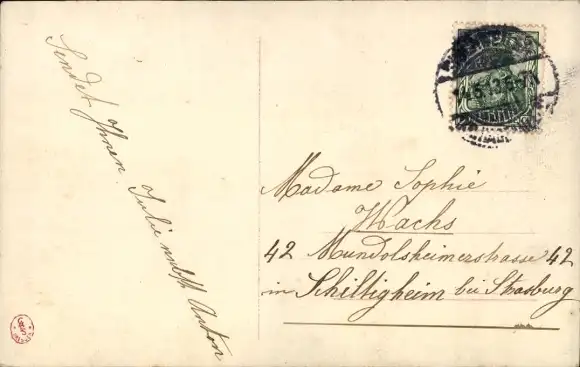 Sendet Ihnen Julie nebst Anton
Madame Sophie
Wachs
42 Mundolsheimerstrasse 42
in Schiltigheim bei Strasburg